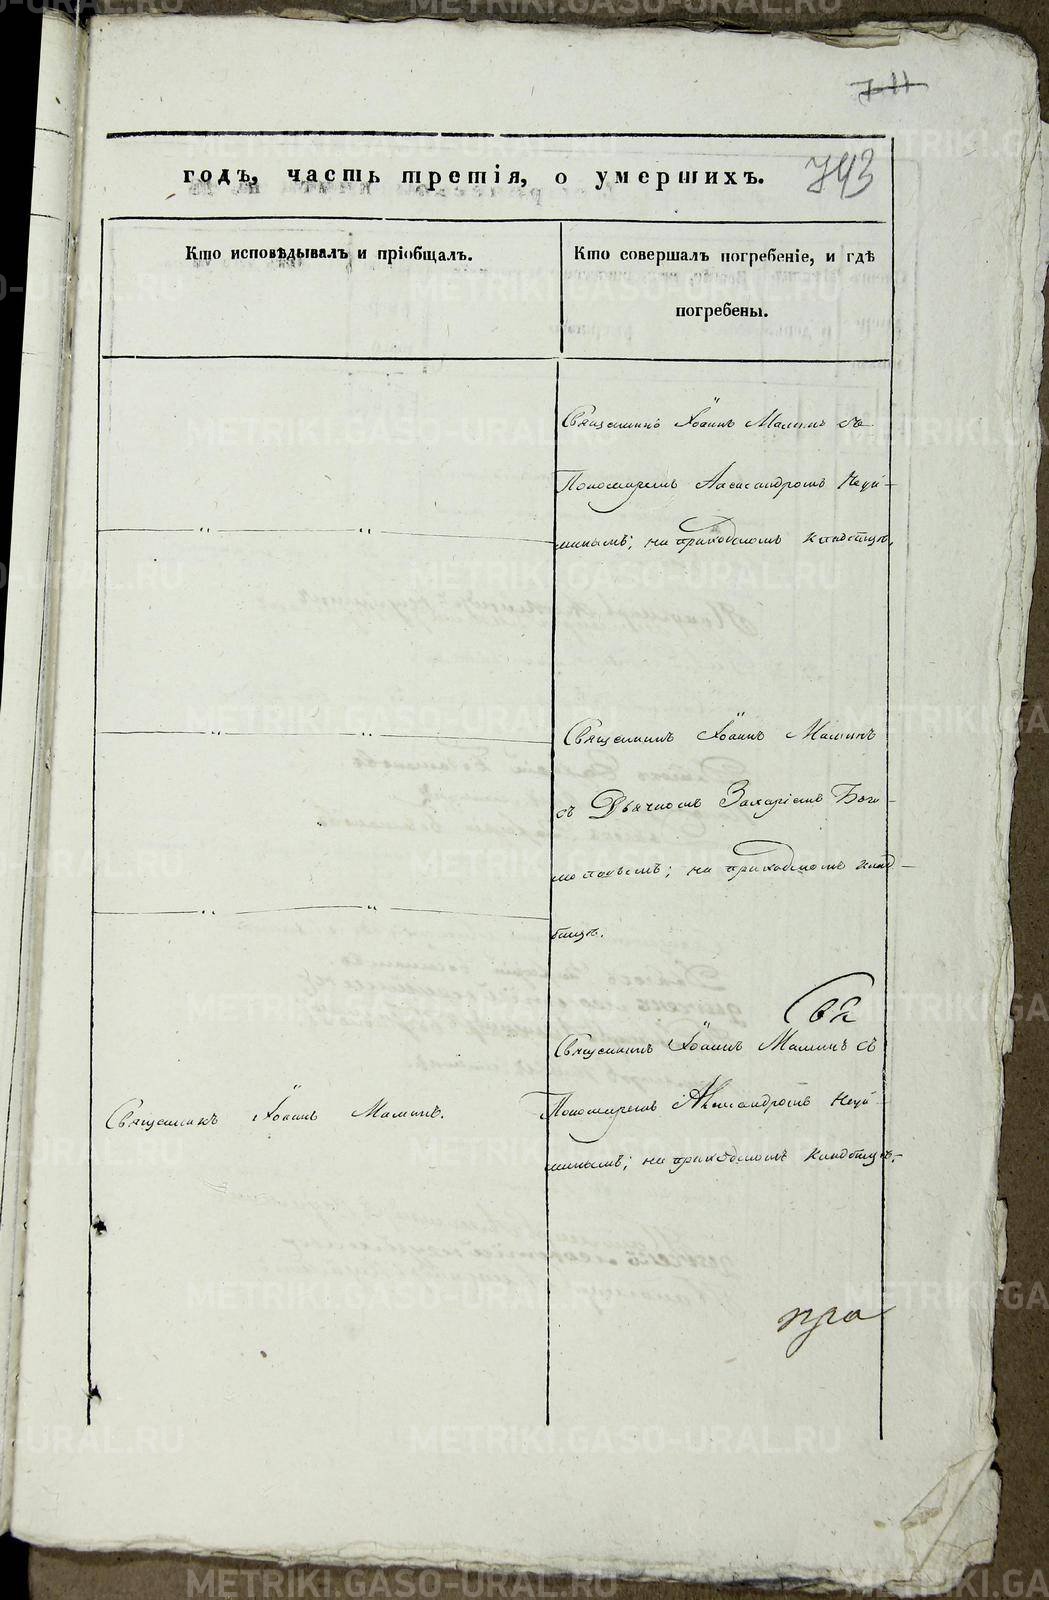 711
годъ, часть третія, о умершихъ. 743
Кто исповѣдывалъ и пріобщалъ.
Кто совершалъ погребеніе, и гдѣ
погребены.
Священникъ Іоаннъ Маминъ съ
Пономаремъ Александромъ Неуй-
минымъ; на приходскомъ кладбищѣ.
Священникъ Іоаннъ Маминъ
съ Дьячкомъ Захаріемъ Бого-
моловымъ; на приходскомъ клад-
бищѣ.
Свя
Священникъ Іоаннъ Маминъ.
Священникъ Іоаннъ Маминъ съ
Пономаремъ Александромъ Неуй-
минымъ; на приходскомъ кладбищѣ.
METRIKI.GASO-URAL.RU